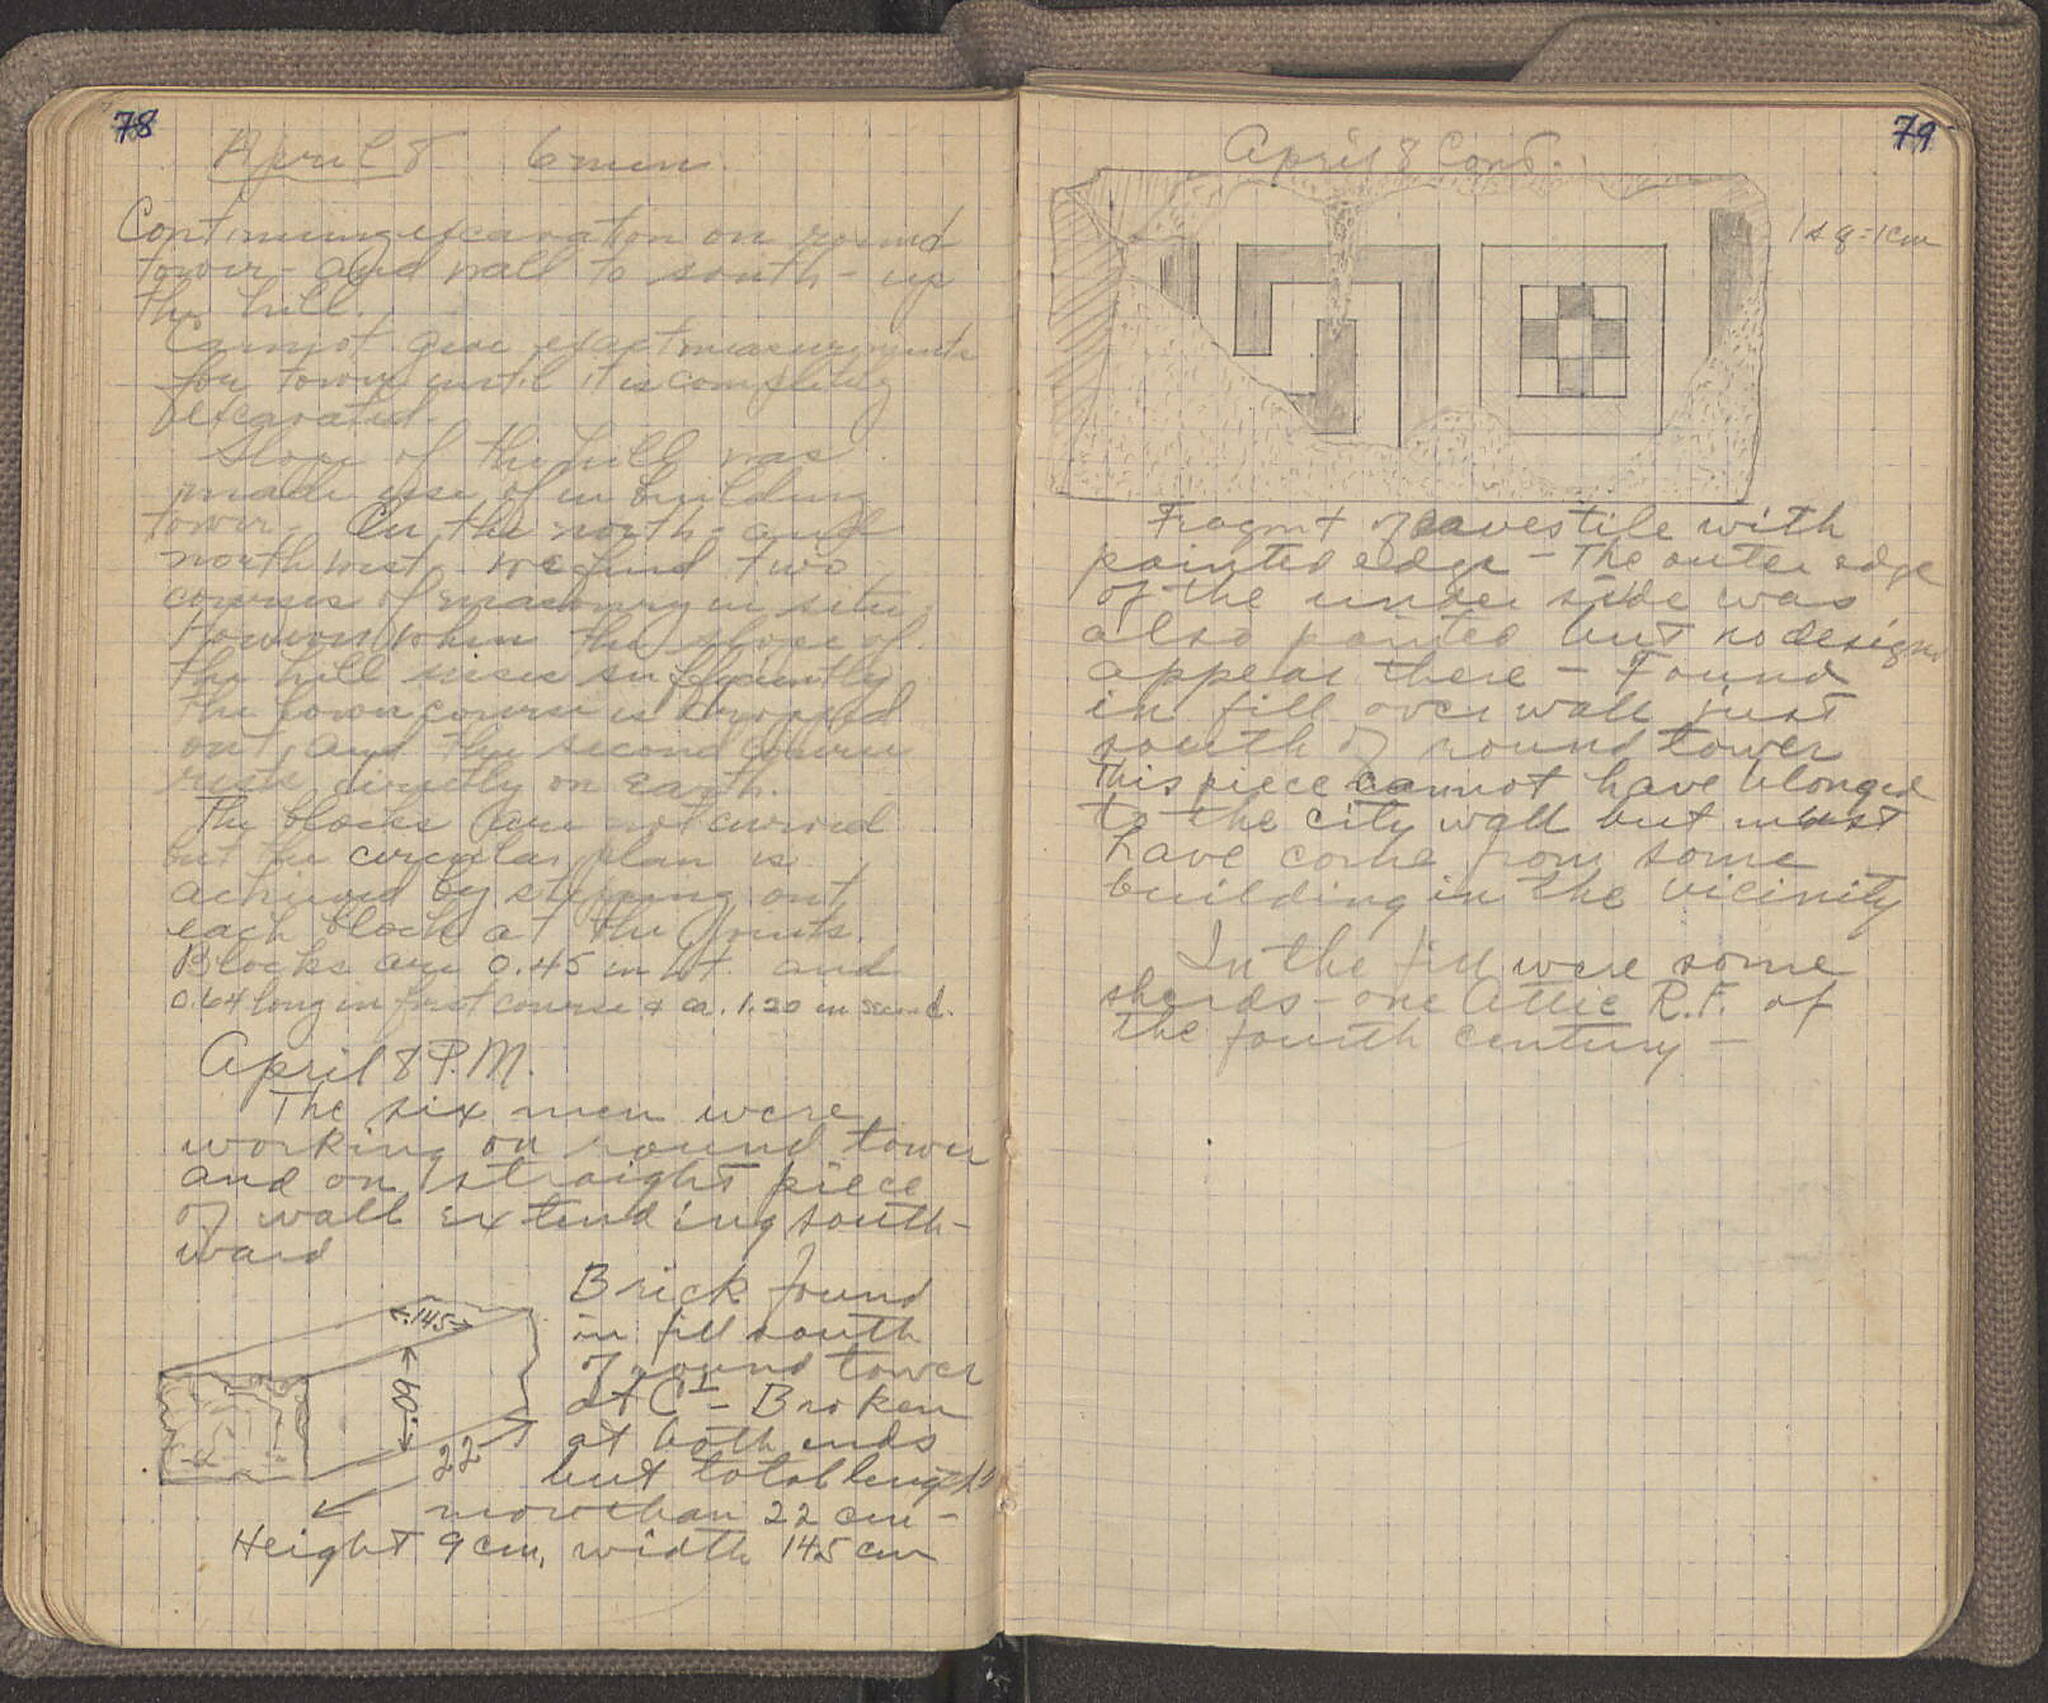 78
April 8 6 men.
Continuing excavation on round
tower - and wall to south - up
the hill.
Cannot give exact measurements
for tower until it is completely
excavated.
Slope of the hill was
made use of in building
tower. On the north - and
northwest, we find two
courses of masonry in situ,
However when the slope of
the hill rises sufficiently
the lower course is dropped
out, and the second course
rests directly on earth.
The blocks are not curved
but the circular plan is
achieved by stepping out
each block at the joints.
Blocks are 0.45 in ht. and
0.64 long in first course & ca. 1.20 in second.
April 8 P.M.
The six men were
working on round tower
and on straight piece
of wall extending south-
ward
.145
.09
22
Brick found
in fill south
of round tower
at C I - Broken
at both ends
but total length
more than 22 cm -
Height 9 cm, width 14.5 cm
79
April 8 Cont.
1 sq = 1 cm
Fragmt of eaves tile with
painted edge - The outer edge
of the under side was
also painted but no design
appears there - Found
in fill over wall just
south of round tower
This piece cannot have blonged
to the city wall but must
have come from some
building in the vicinity
In the fill were some
sherds - one Attic R.F. of
the fourth century -